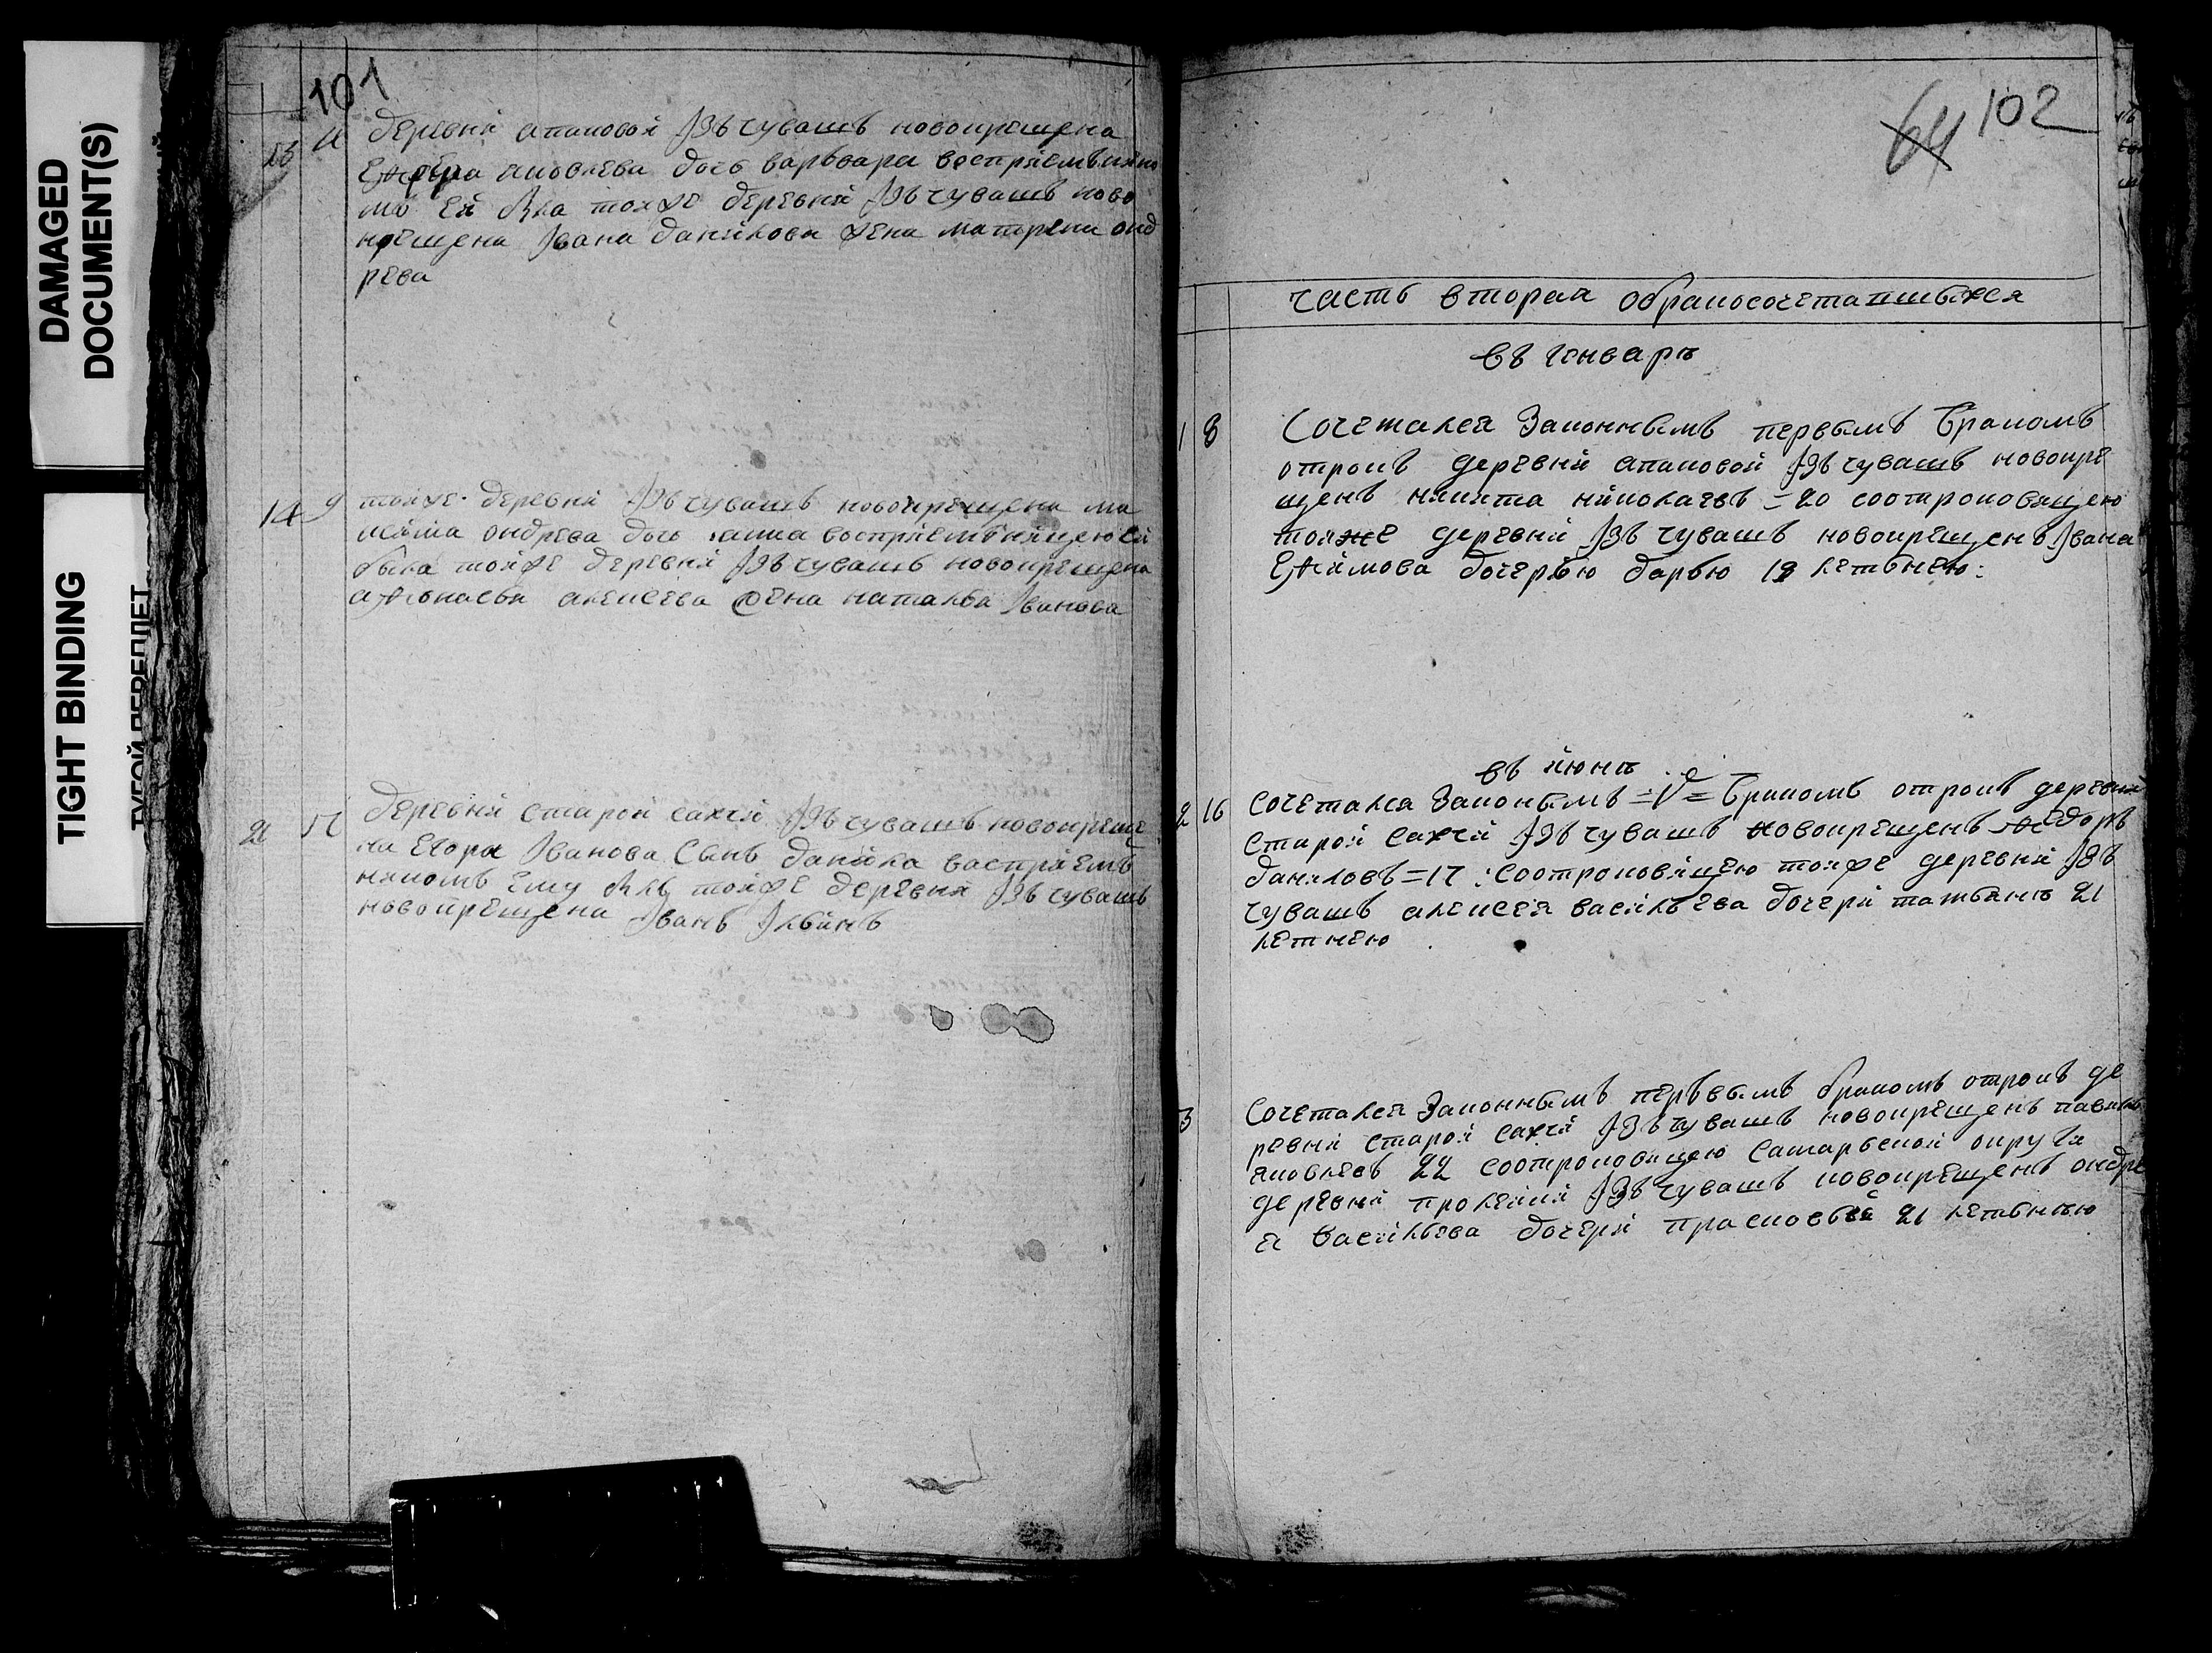 DAMAGED
DOCUMENT(S)
TIGHT BINDING
ТУГОЙ ПЕРЕПЛЕТ
101
13 деревни апаковой Iзъ чувашъ новокрещена
яковлева дочь варъвара
ей тояже деревни Iзъ чувашъ ново
крещена Iвана данилова жена матрена онд
рева
14 9 тояже деревни Iзъ чувашъ новокрещена
ондрева дочь
была тояже деревни Iзъ чувашъ новокрещена
алексеева жена наталья Iванова
деревни старой сахчи Iзъ чувашъ новокреще
на Егора Iванова сынъ данила васприем
никомъ ему тояже деревни Iзъ чувашъ
новокрещена Iванъ Iльинъ
64 102
часть вторая обракосочетапшыхся
въ генварѣ
1 8 Сочеталей Законнымъ первымъ бракомъ
отрокъ деревни апаковой Iзъ чувашъ новокре
щенъ никита николаевъ = 20 соотроковицею
тояже деревни Iзъ чувашъ новокрещенъ Iвана
Ефимова дочерью дарью 19 летьнею:
въ июнѣ
2 16 сочетался Законымъ =V= бракомъ отрокъ деревни
старой сахчи Iзъ чувашъ новокрещенъ федоръ
даниловъ = 17 : соотроковицею тояже деревни Iзъ
чувашъ алексея васильева дочери татьянѣ 21
летнею
3 сочеталея Законнымъ перъвымъ бракомъ отрокъ де
ревни старой сахчи Iзъ чувашъ новокрещенъ
яковлевъ 22 соотроковицею самарьской округи
деревни пролеики Iзъ чувашъ новокрещенъ ондре
я васильева дочери прасковьей 21 летьнѣю